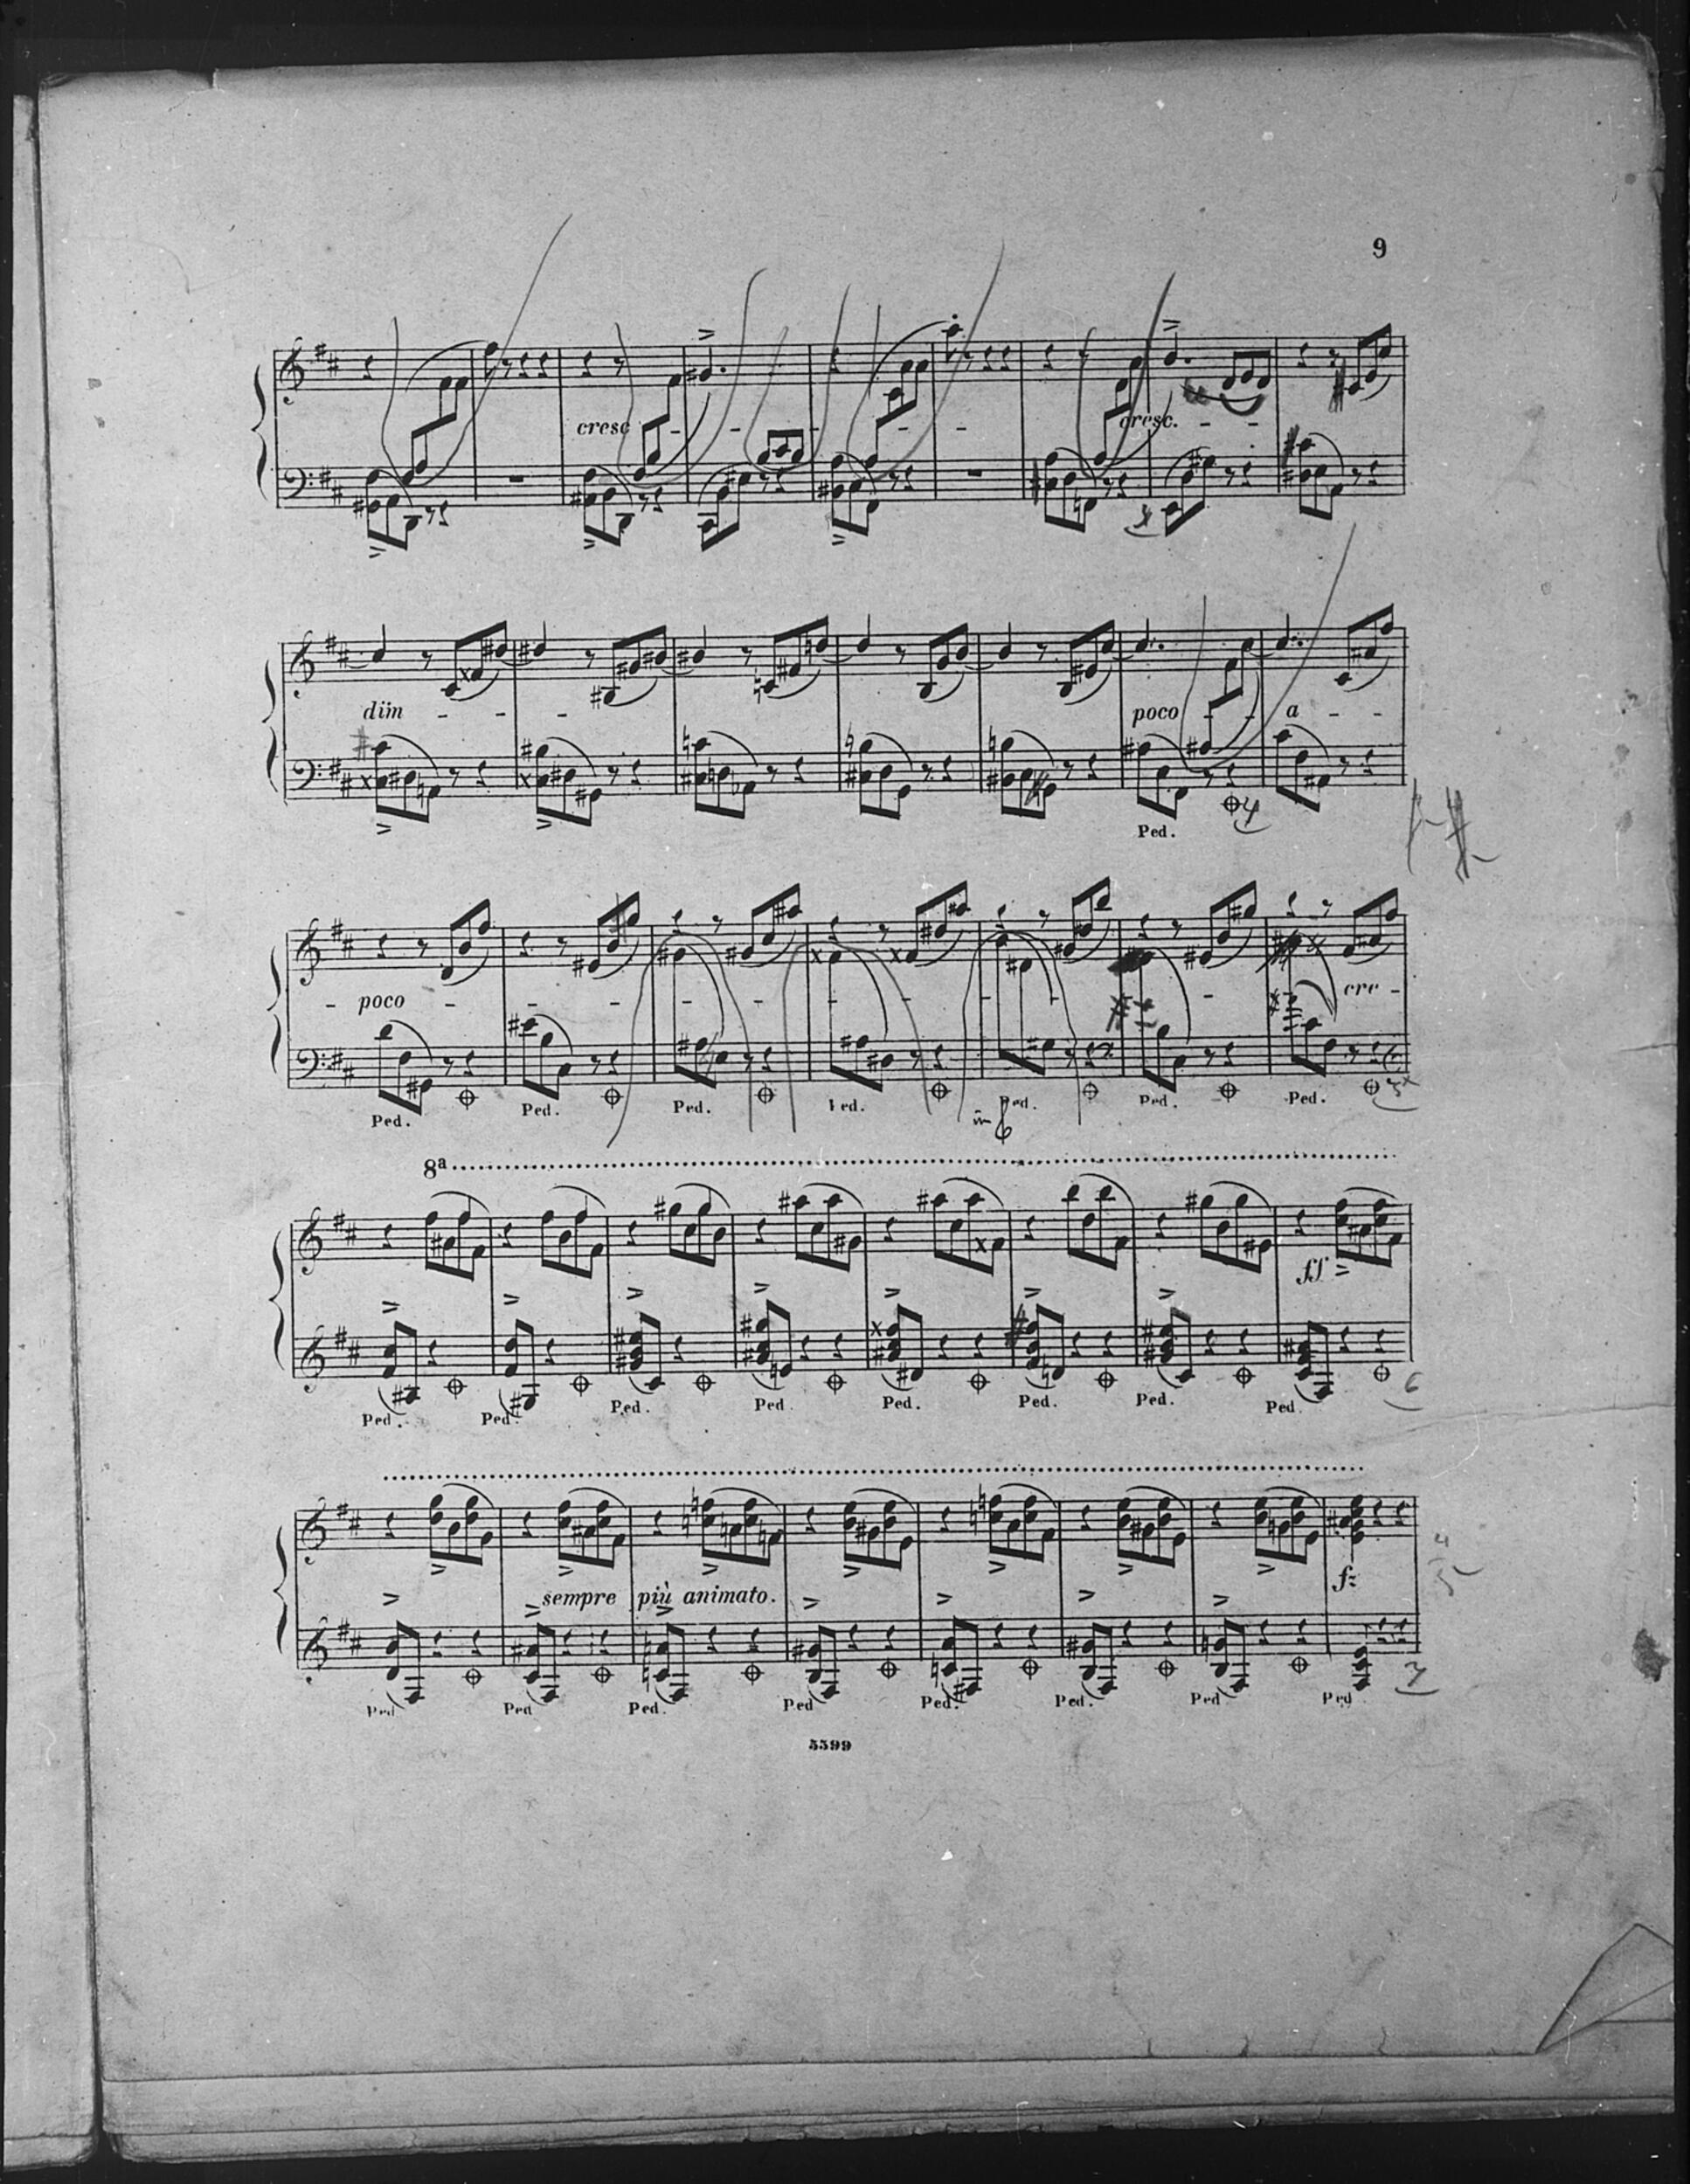 9
cresc - - - - - cresc. - -
dim - - - poco - - a - -
- poco - - - - - - - - - cre -
Ped. Ped. Ped. Ped. Ped. Ped. Ped.
8ª
ff
Ped. Ped. Ped. Ped. Ped. Ped. Ped. Ped.
sempre più animato.
fz
Ped Ped Ped. Ped Ped. Ped. Ped Ped
5599